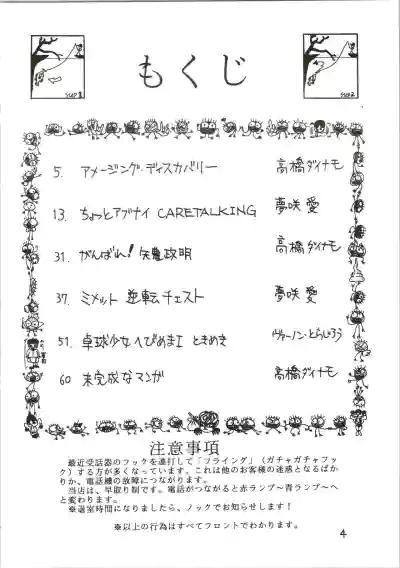 もくじ
STEP 1
STEP 2
5. アメージング・ディスカバリー 高橋ダイナモ
13. ちょっとアブナイ CARETALKING 夢咲 愛
31. がんばれ! 矢亀政明 高橋ダイナモ
37. ミメット 逆転チェスト 夢咲 愛
51. 卓球少女へびめまI ときめき ヴァーノン・とらじろう
60 未完成なマンガ 高橋ダイナモ
注意事項
最近受話器のフックを連打して「フライング」(ガチャガチャフッ
ク)する方が多くなっています。これは他のお客様の迷惑となるばか
りか、電話機の故障につながります。
当店は、早取り制です。電話がつながると赤ランプ～青ランプ～へ
と変わります。
※退室時間になりましたら、ノックでお知らせします!
※以上の行為はすべてフロントでわかります。
4